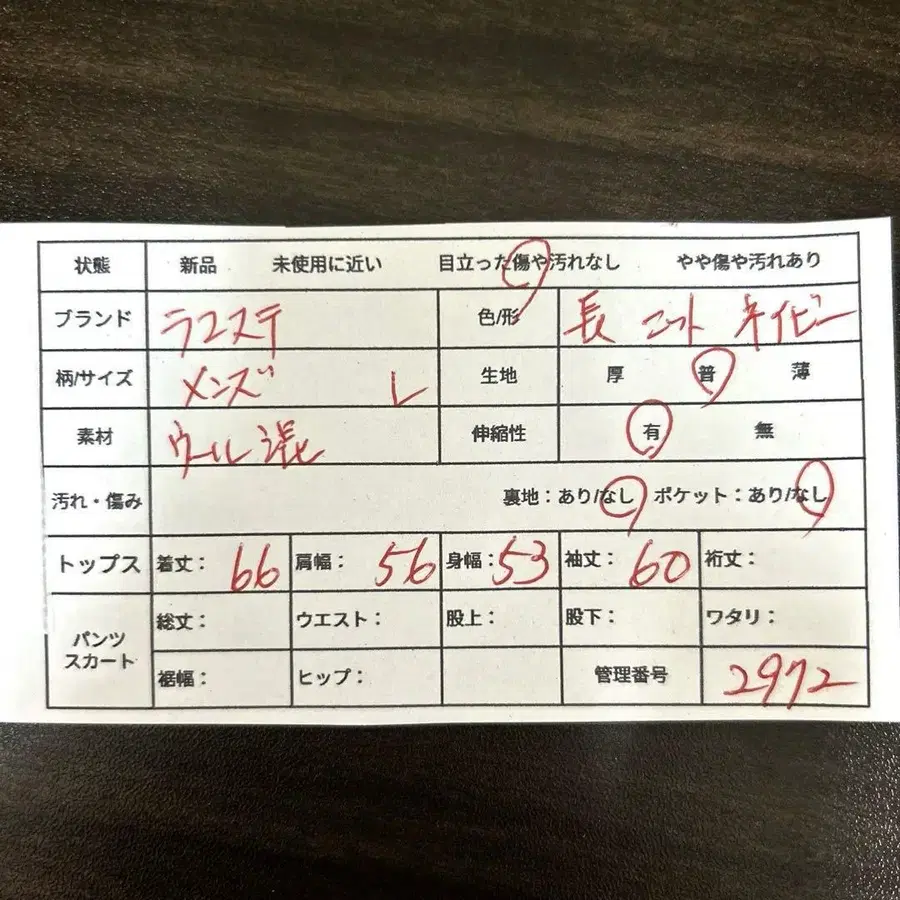 状態 新品 未使用に近い 目立った傷や汚れなし やや傷や汚れあり
ブランド ラコステ 色/形 長 ニット ネイビー
柄/サイズ メンズ L 生地 厚 普 薄
素材 ウール 伸縮性 有 無
汚れ・傷み 裏地：あり/なし ポケット：あり/なし
トップス 着丈：66 肩幅：56 身幅：53 袖丈：60 裄丈：
パンツ スカート 総丈： ウエスト： 股上： 股下： ワタリ：
裾幅： ヒップ： 管理番号 2972